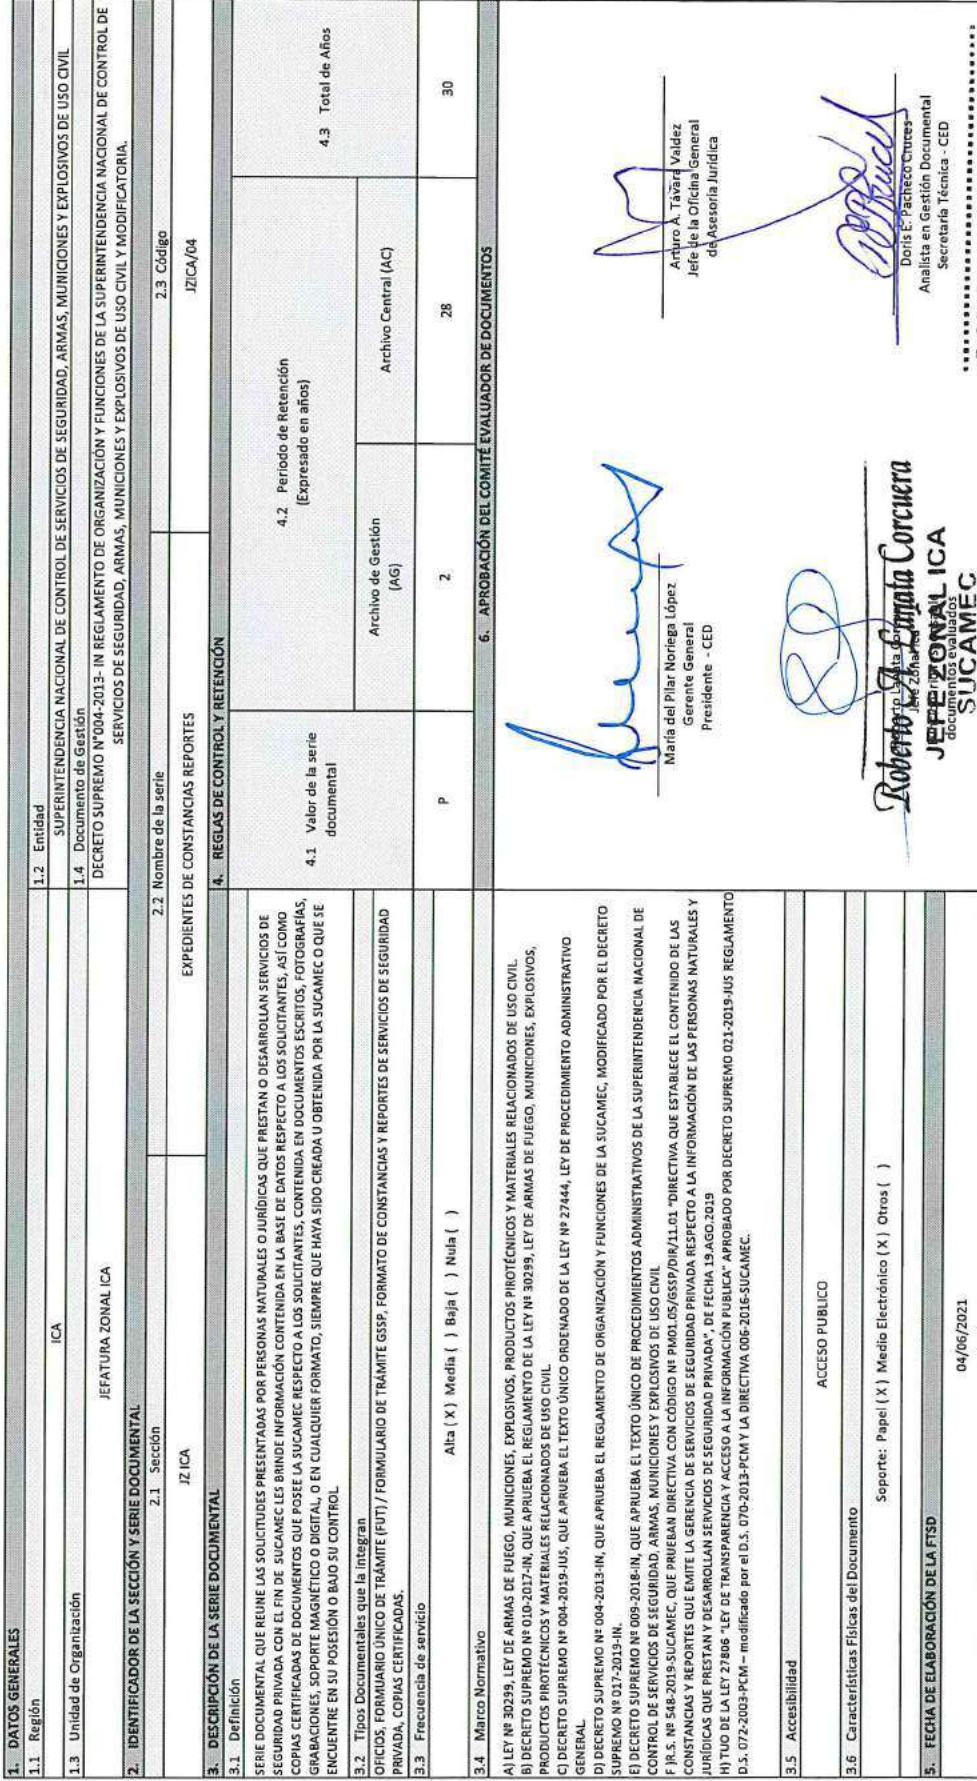 1. DATOS GENERALES
1.1 Región
ICA
1.2 Entidad
SUPERINTENDENCIA NACIONAL DE CONTROL DE SERVICIOS DE SEGURIDAD, ARMAS, MUNICIONES Y EXPLOSIVOS DE USO CIVIL
1.3 Unidad de Organización
JEFATURA ZONAL ICA
1.4 Documento de Gestión
DECRETO SUPREMO N°004-2013- IN REGLAMENTO DE ORGANIZACIÓN Y FUNCIONES DE LA SUPERINTENDENCIA NACIONAL DE CONTROL DE
SERVICIOS DE SEGURIDAD, ARMAS, MUNICIONES Y EXPLOSIVOS DE USO CIVIL Y MODIFICATORIA.
2. IDENTIFICADOR DE LA SECCIÓN Y SERIE DOCUMENTAL
2.1 Sección
JZ ICA
2.2 Nombre de la serie
EXPEDIENTES DE CONSTANCIAS REPORTES
2.3 Código
JZICA/04
3. DESCRIPCIÓN DE LA SERIE DOCUMENTAL
3.1 Definición
SERIE DOCUMENTAL QUE REUNE LAS SOLICITUDES PRESENTADAS POR PERSONAS NATURALES O JURÍDICAS QUE PRESTAN O DESARROLLAN SERVICIOS DE
SEGURIDAD PRIVADA CON EL FIN DE SUCAMEC LES BRINDE INFORMACIÓN CONTENIDA EN LA BASE DE DATOS RESPECTO A LOS SOLICITANTES, ASÍ COMO
COPIAS CERTIFICADAS DE DOCUMENTOS QUE POSEE LA SUCAMEC RESPECTO A LOS SOLICITANTES, CONTENIDA EN DOCUMENTOS ESCRITOS, FOTOGRAFÍAS,
GRABACIONES, SOPORTE MAGNÉTICO O DIGITAL, O EN CUALQUIER FORMATO, SIEMPRE QUE HAYA SIDO CREADA U OBTENIDA POR LA SUCAMEC O QUE SE
ENCUENTRE EN SU POSESIÓN O BAJO SU CONTROL
3.2 Tipos Documentales que la integran
OFICIOS, FORMUARIO ÚNICO DE TRÁMITE (FUT) / FORMULARIO DE TRÁMITE GSSP, FORMATO DE CONSTANCIAS Y REPORTES DE SERVICIOS DE SEGURIDAD
PRIVADA, COPIAS CERTIFICADAS.
3.3 Frecuencia de servicio
Alta ( X ) Media ( ) Baja ( ) Nula ( )
3.4 Marco Normativo
A) LEY Nº 30299, LEY DE ARMAS DE FUEGO, MUNICIONES, EXPLOSIVOS, PRODUCTOS PIROTÉCNICOS Y MATERIALES RELACIONADOS DE USO CIVIL
B) DECRETO SUPREMO Nº 010-2017-IN, QUE APRUEBA EL REGLAMENTO DE LA LEY Nº 30299, LEY DE ARMAS DE FUEGO, MUNICIONES, EXPLOSIVOS,
PRODUCTOS PIROTÉCNICOS Y MATERIALES RELACIONADOS DE USO CIVIL
C) DECRETO SUPREMO Nº 004-2019-JUS, QUE APRUEBA EL TEXTO ÚNICO ORDENADO DE LA LEY Nº 27444, LEY DE PROCEDIMIENTO ADMINISTRATIVO
GENERAL.
D) DECRETO SUPREMO Nº 004-2013-IN, QUE APRUEBA EL REGLAMENTO DE ORGANIZACIÓN Y FUNCIONES DE LA SUCAMEC, MODIFICADO POR EL DECRETO
SUPREMO Nº 017-2019-IN.
E) DECRETO SUPREMO Nº 009-2018-IN, QUE APRUEBA EL TEXTO ÚNICO DE PROCEDIMIENTOS ADMINISTRATIVOS DE LA SUPERINTENDENCIA NACIONAL DE
CONTROL DE SERVICIOS DE SEGURIDAD, ARMAS, MUNICIONES Y EXPLOSIVOS DE USO CIVIL
F )R.S. Nº 548-2019-SUCAMEC, QUE PRUEBAN DIRECTIVA CON CÓDIGO Nº PM01.05/GSSP/DIR/11.01 "DIRECTIVA QUE ESTABLECE EL CONTENIDO DE LAS
CONSTANCIAS Y REPORTES QUE EMITE LA GERENCIA DE SERVICIOS DE SEGURIDAD PRIVADA RESPECTO A LA INFORMACIÓN DE LAS PERSONAS NATURALES Y
JURÍDICAS QUE PRESTAN Y DESARROLLAN SERVICIOS DE SEGURIDAD PRIVADA", DE FECHA 19.AGO.2019
H) TUO DE LA LEY 27806 "LEY DE TRANSPARENCIA Y ACCESO A LA INFORMACIÓN PUBLICA" APROBADO POR DECRETO SUPREMO 021-2019-JUS REGLAMENTO
D.S. 072-2003-PCM – modificado por el D.S. 070-2013-PCM Y LA DIRECTIVA 006-2016-SUCAMEC.
3.5 Accesibilidad
ACCESO PUBLICO
3.6 Características Físicas del Documento
Soporte: Papel ( X ) Medio Electrónico ( X ) Otros ( )
5. FECHA DE ELABORACIÓN DE LA FTSD
04/06/2021
4. REGLAS DE CONTROL Y RETENCIÓN
4.1 Valor de la serie
documental
4.2 Periodo de Retención
(Expresado en años)
4.3 Total de Años
Archivo de Gestión
(AG)
Archivo Central (AC)
P
2
28
30
6. APROBACIÓN DEL COMITÉ EVALUADOR DE DOCUMENTOS
María del Pilar Noriega López
Gerente General
Presidente - CED
Arturo A. Távara Valdez
Jefe de la Oficina General
de Asesoría Jurídica
Roberto A. Langata Corcuera
Jefe Zonal
JEFE ZONAL ICA
documentos evaluados
SUCAMEC
Doris E. Pacheco Cruces
Analista en Gestión Documental
Secretaría Técnica - CED